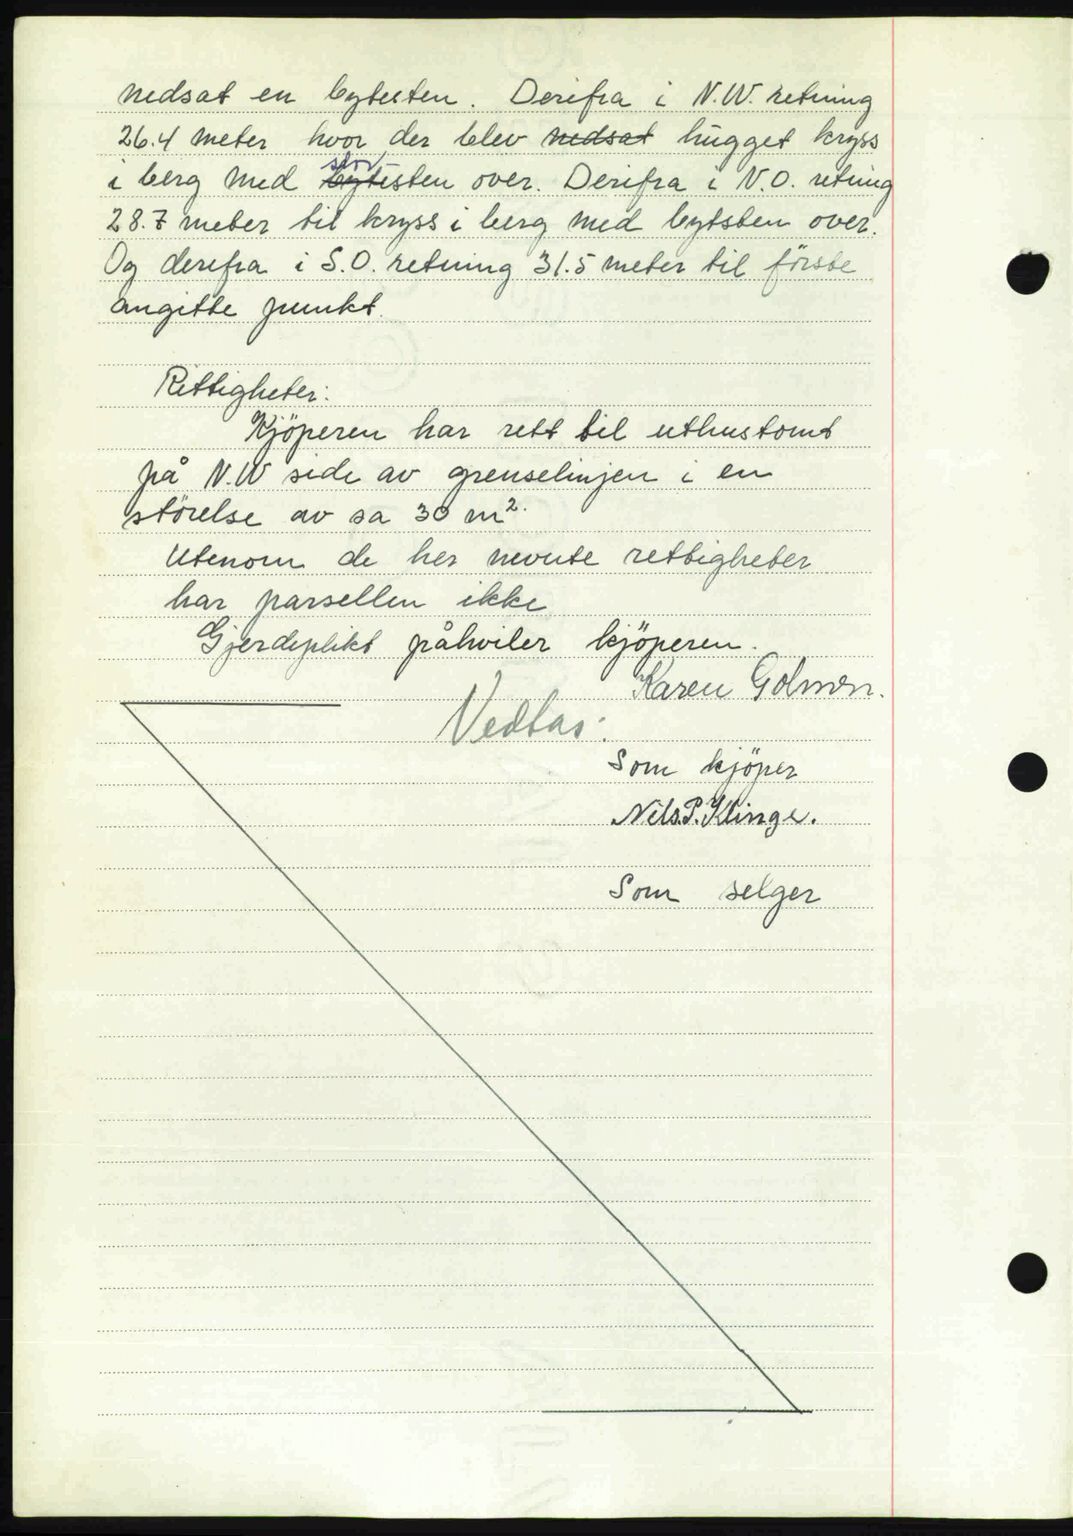 nedsat en bytesten. Derifra i N.W. retning
26.4 meter hvor der blev nedsat hugget kryss
i berg med bytesten stor over. Derifra i N.O. retning
28.7 meter til kryss i berg med bytsten over.
Og derifra i S.O. retning 31.5 meter til förste
angitte punkt.
Rettigheter:
Kjöperen har rett til uthustomt
på N.W side av grenselinjen i en
störelse av sa 30 m².
Utenom de her nevnte rettigheter
har parsellen ikke
Gjerdeplikt påhviler kjöperen.
Karen Golmen.
Vedtas:
Som kjöper
Nils.P.Klinge.
Som selger